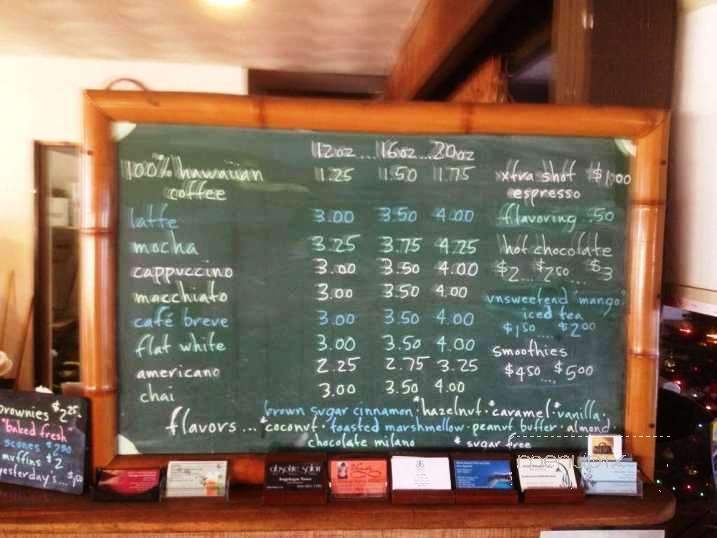 12oz...16oz...20oz
100% hawaiian coffee 1.25 1.50 1.75
latte 3.00 3.50 4.00
mocha 3.25 3.75 4.25
cappuccino 3.00 3.50 4.00
macchiato 3.00 3.50 4.00
café breve 3.00 3.50 4.00
flat white 3.00 3.50 4.00
americano 2.25 2.75 3.25
chai 3.00 3.50 4.00
xtra shot $1.00
espresso
flavoring .50
hot chocolate
$2... $2.50... $3
unsweetend mango
iced tea
$1.50 .... $2.00
smoothies
$4.50 .... $5.00
flavors... brown sugar cinnamon · *hazelnut · *caramel · *vanilla ·
*coconut · toasted marshmallow · peanut butter · almond
chocolate milano * sugar free
brownies $2.25
*baked fresh
scones $2.50
muffins $2
yesterday's...
absolute salon